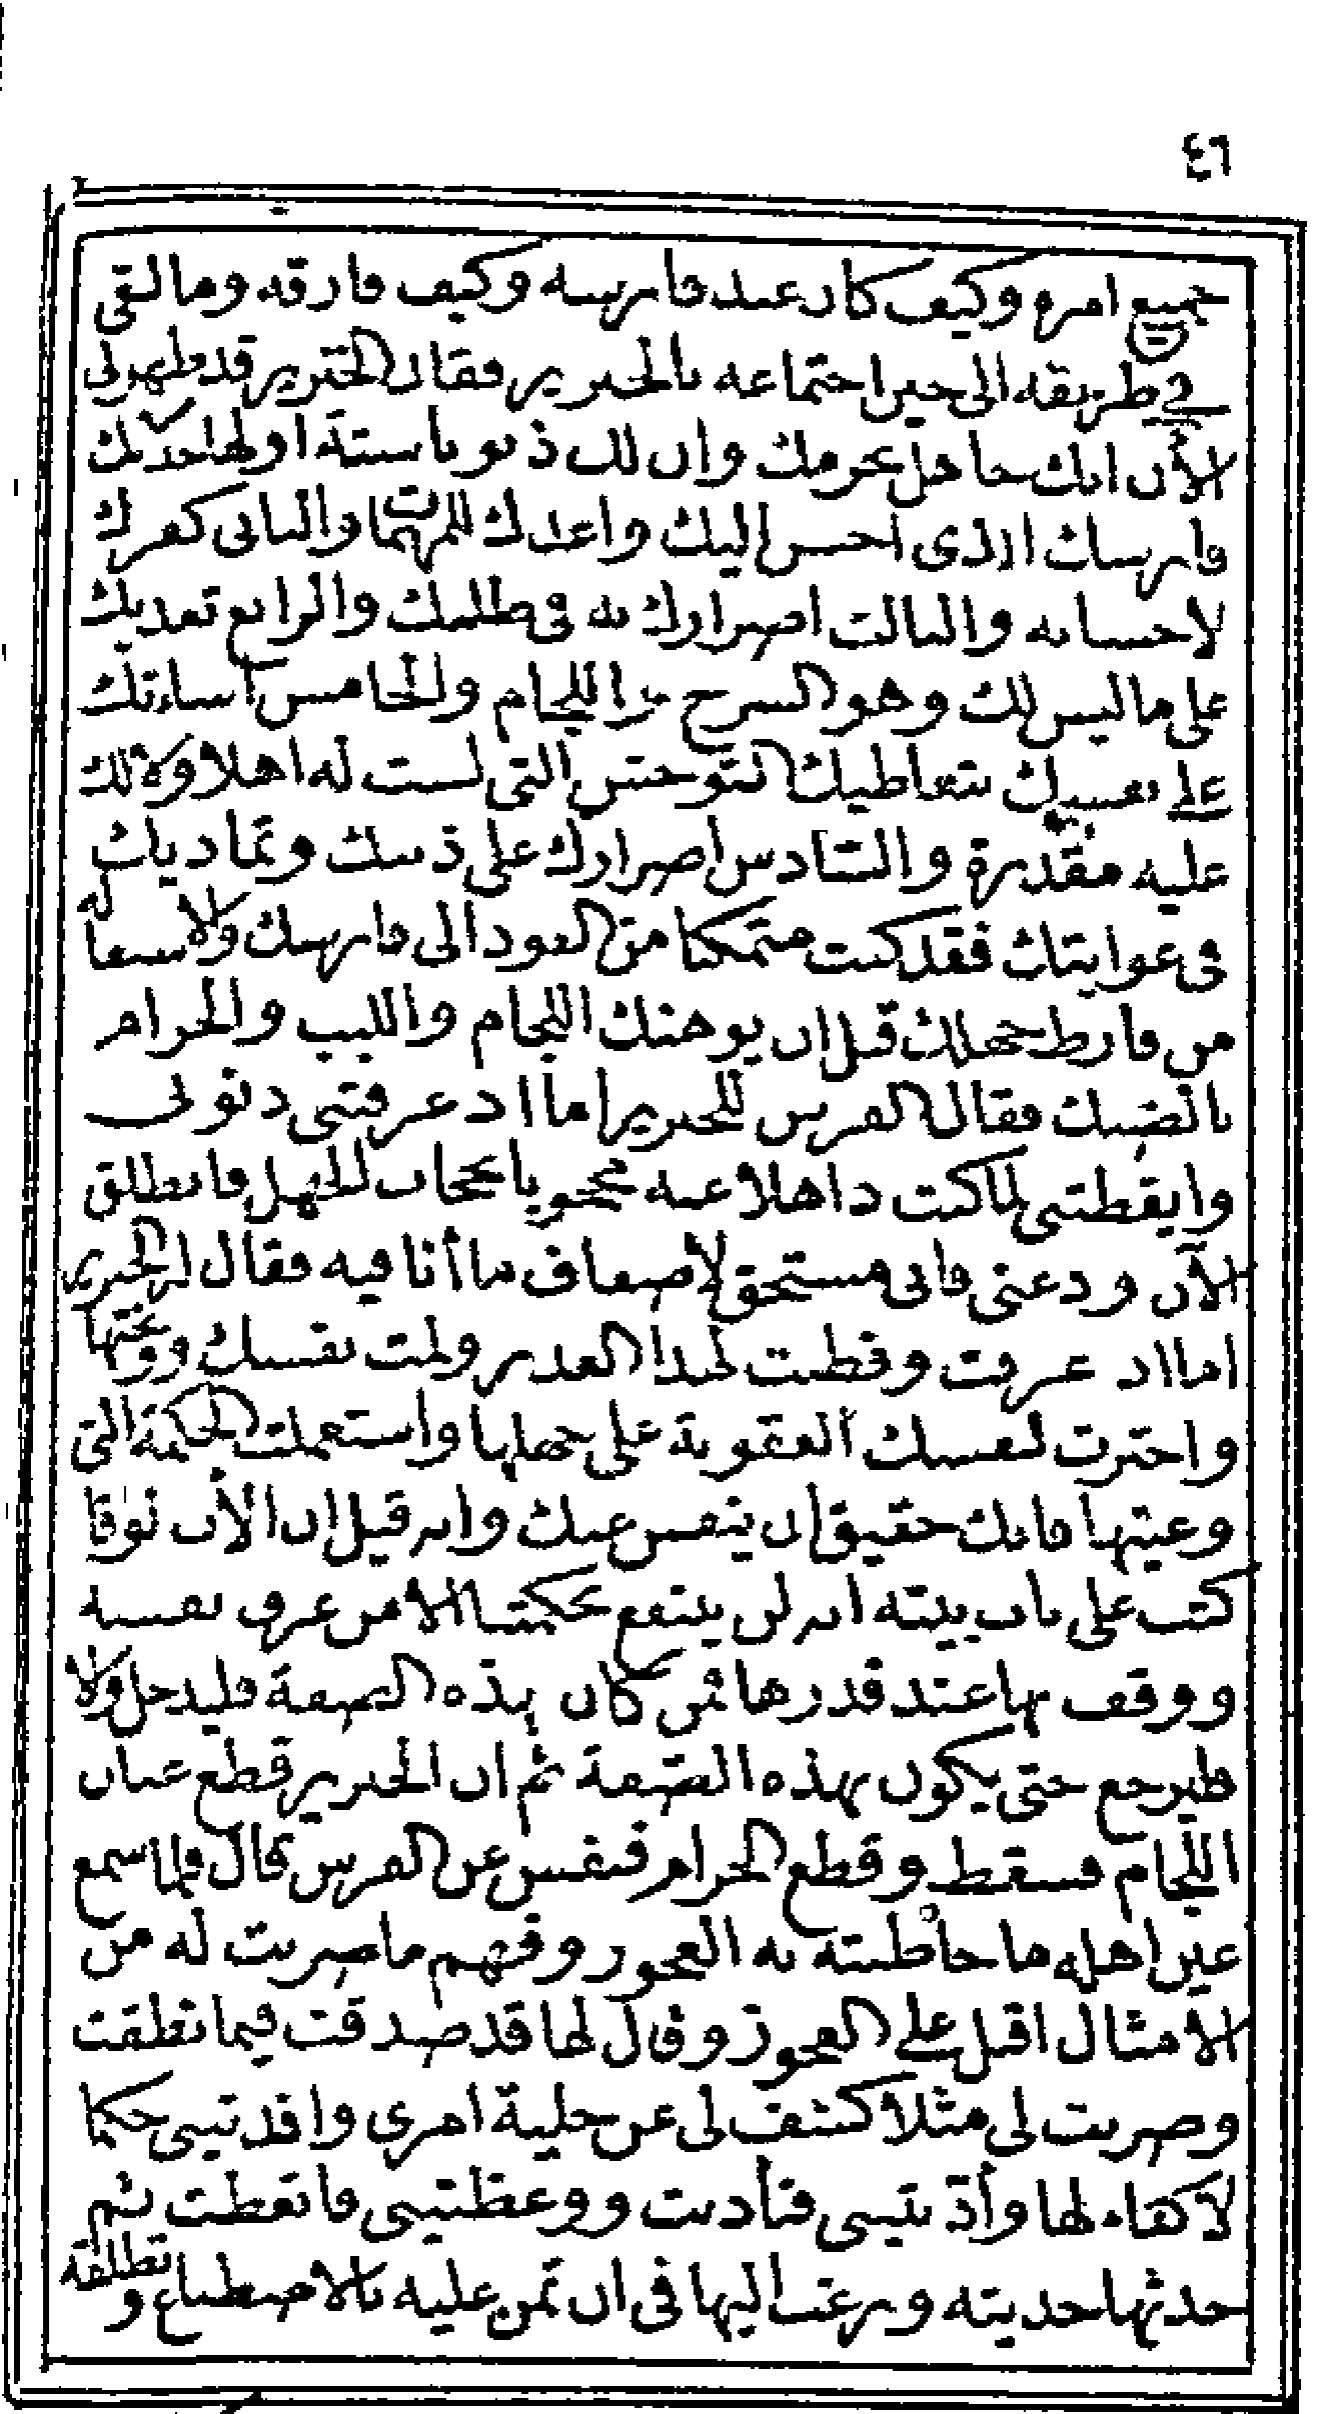 ٤٦
جميع امره وكيف كان عند فارسه وكيف فارقه وما لقى
في طريقه الى حين اجتماعه بالخنزير فقال الخنزير قد ظهر لى
الآن انك جاهل بجرمك وان لك ذنوبا ستة اولها خذلانك
فارسك الذى احسن اليك واعدك للمهمات والثانى كفرك
لاحسانه والثالث اضرارك به فى طلبك والرابع تعديك
على ما ليس لك وهو السرج واللجام والخامس اساءتك
على نفسك بتعاطيك التوحش التى لست له اهلا ولا لك
عليه مقدرة والسادس اصرارك على ذنبك وتماديك
فى غوايتك فقد كنت متمكنا من العود الى فارسك ولاستعفا له
من فارط جهلك قبل ان يوهنك اللجام واللبب والحزام
بالضنك فقال الفرس للخنزير اما اذ عرفتنى ذنوبى
وايقظتنى لما كنت ذاهلا عنه محجوبا بحجاب الجهل فانطلق
الآن ودعنى فانى مستحق لاضعاف ما أنا فيه فقال له الخنزير
اما اذ عرفت وفطنت لهذا القدر ولمت نفسك ووبختها
واخترت لنفسك العقوبة على جهلها واستعملت الحكمة التى
وعيتها فانك حقيق ان ينفس عنك وانه قيل ان الأن نوفا
كتب على باب بيته انه لن ينتفع بحكمتنا الا من عرف نفسه
ووقف بها عند قدرها فمن كان بهذه الصفة فليدخل والا
فليرجع حتى يكون بهذه الصفة ثم ان الخنزير قطع عنان
اللجام فسقط وقطع الحزام فنفس عن الفرس قال فلما سمع
عين اهله ما خاطبته به العجوز وفهم ما ضربت له من
الامثال اقبل على العجوز وقال لها قد صدقت فيما نطقت
وضربت لى مثلا كشف لى عن جلية امرى وافدتينى حكما
لا كفاء لها وأدبتينى فتأدبت ووعظتينى فاتعظت ثم
حدثها حديثه ورغب اليها فى ان تمن عليه بالاصطناع وتطلقه